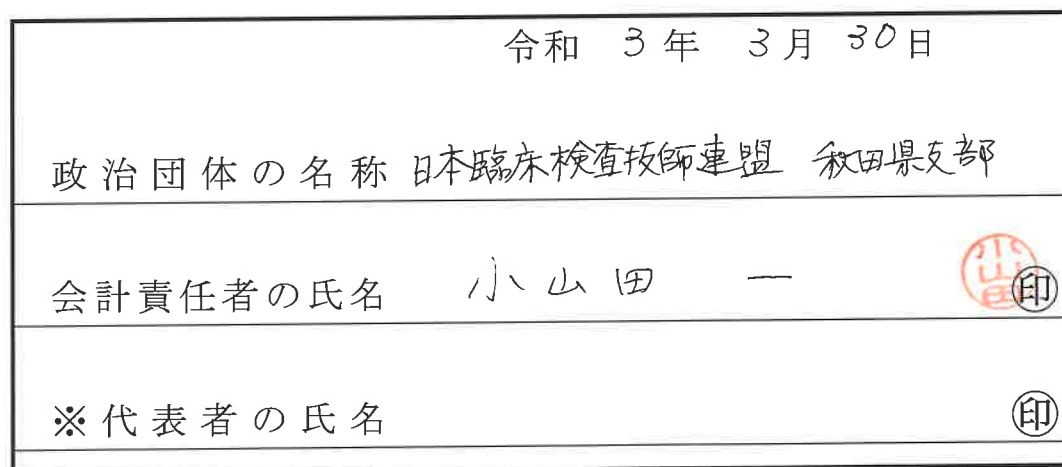 令和 3年 3月 30日
政治団体の名称 日本臨床検査技師連盟 秋田県支部
会計責任者の氏名 小山田 一 小山田 印
※代表者の氏名 印